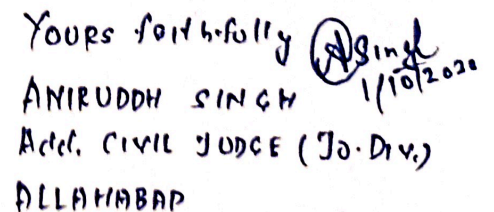 Yours faithfully ASingh
1/10/2020
ANIRUDDH SINGH
Addl. CIVIL JUDGE (Jo. Div.)
ALLAHABAD